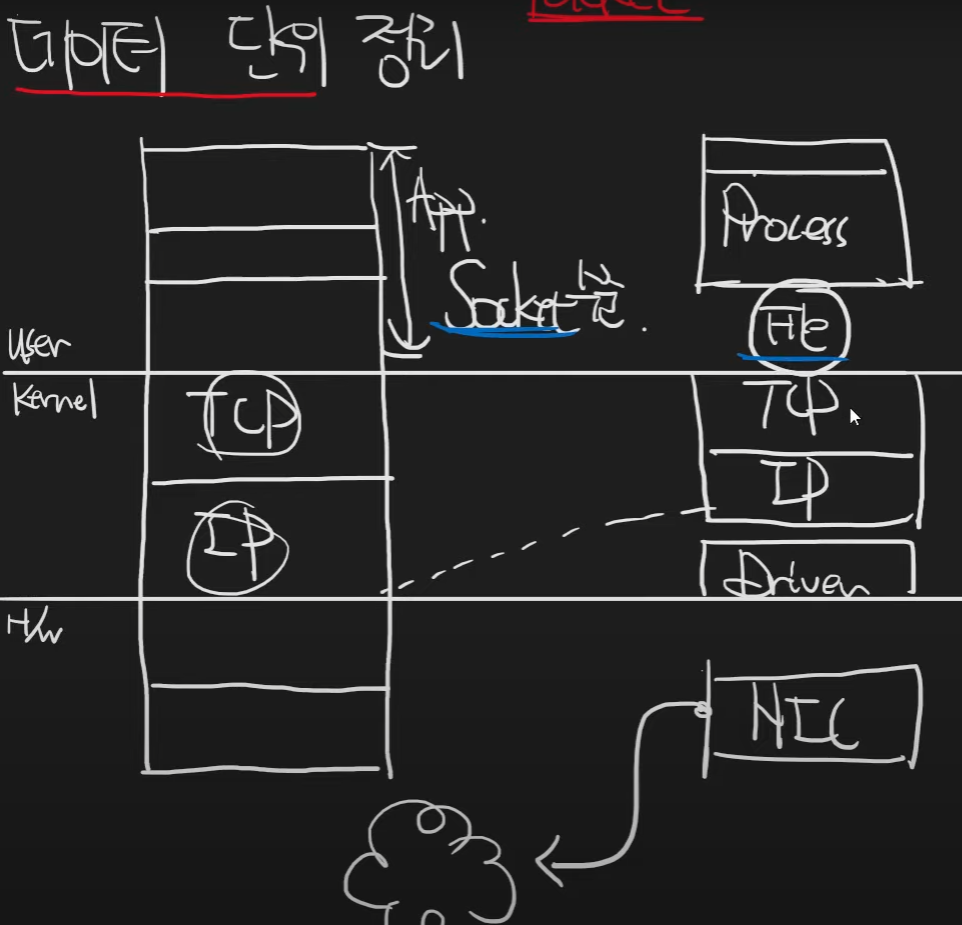 데이터 단위 정리
App.
Socket 수준.
Process
File
User
Kernel
TCP
IP
TCP
IP
Driver
H/W
NIC